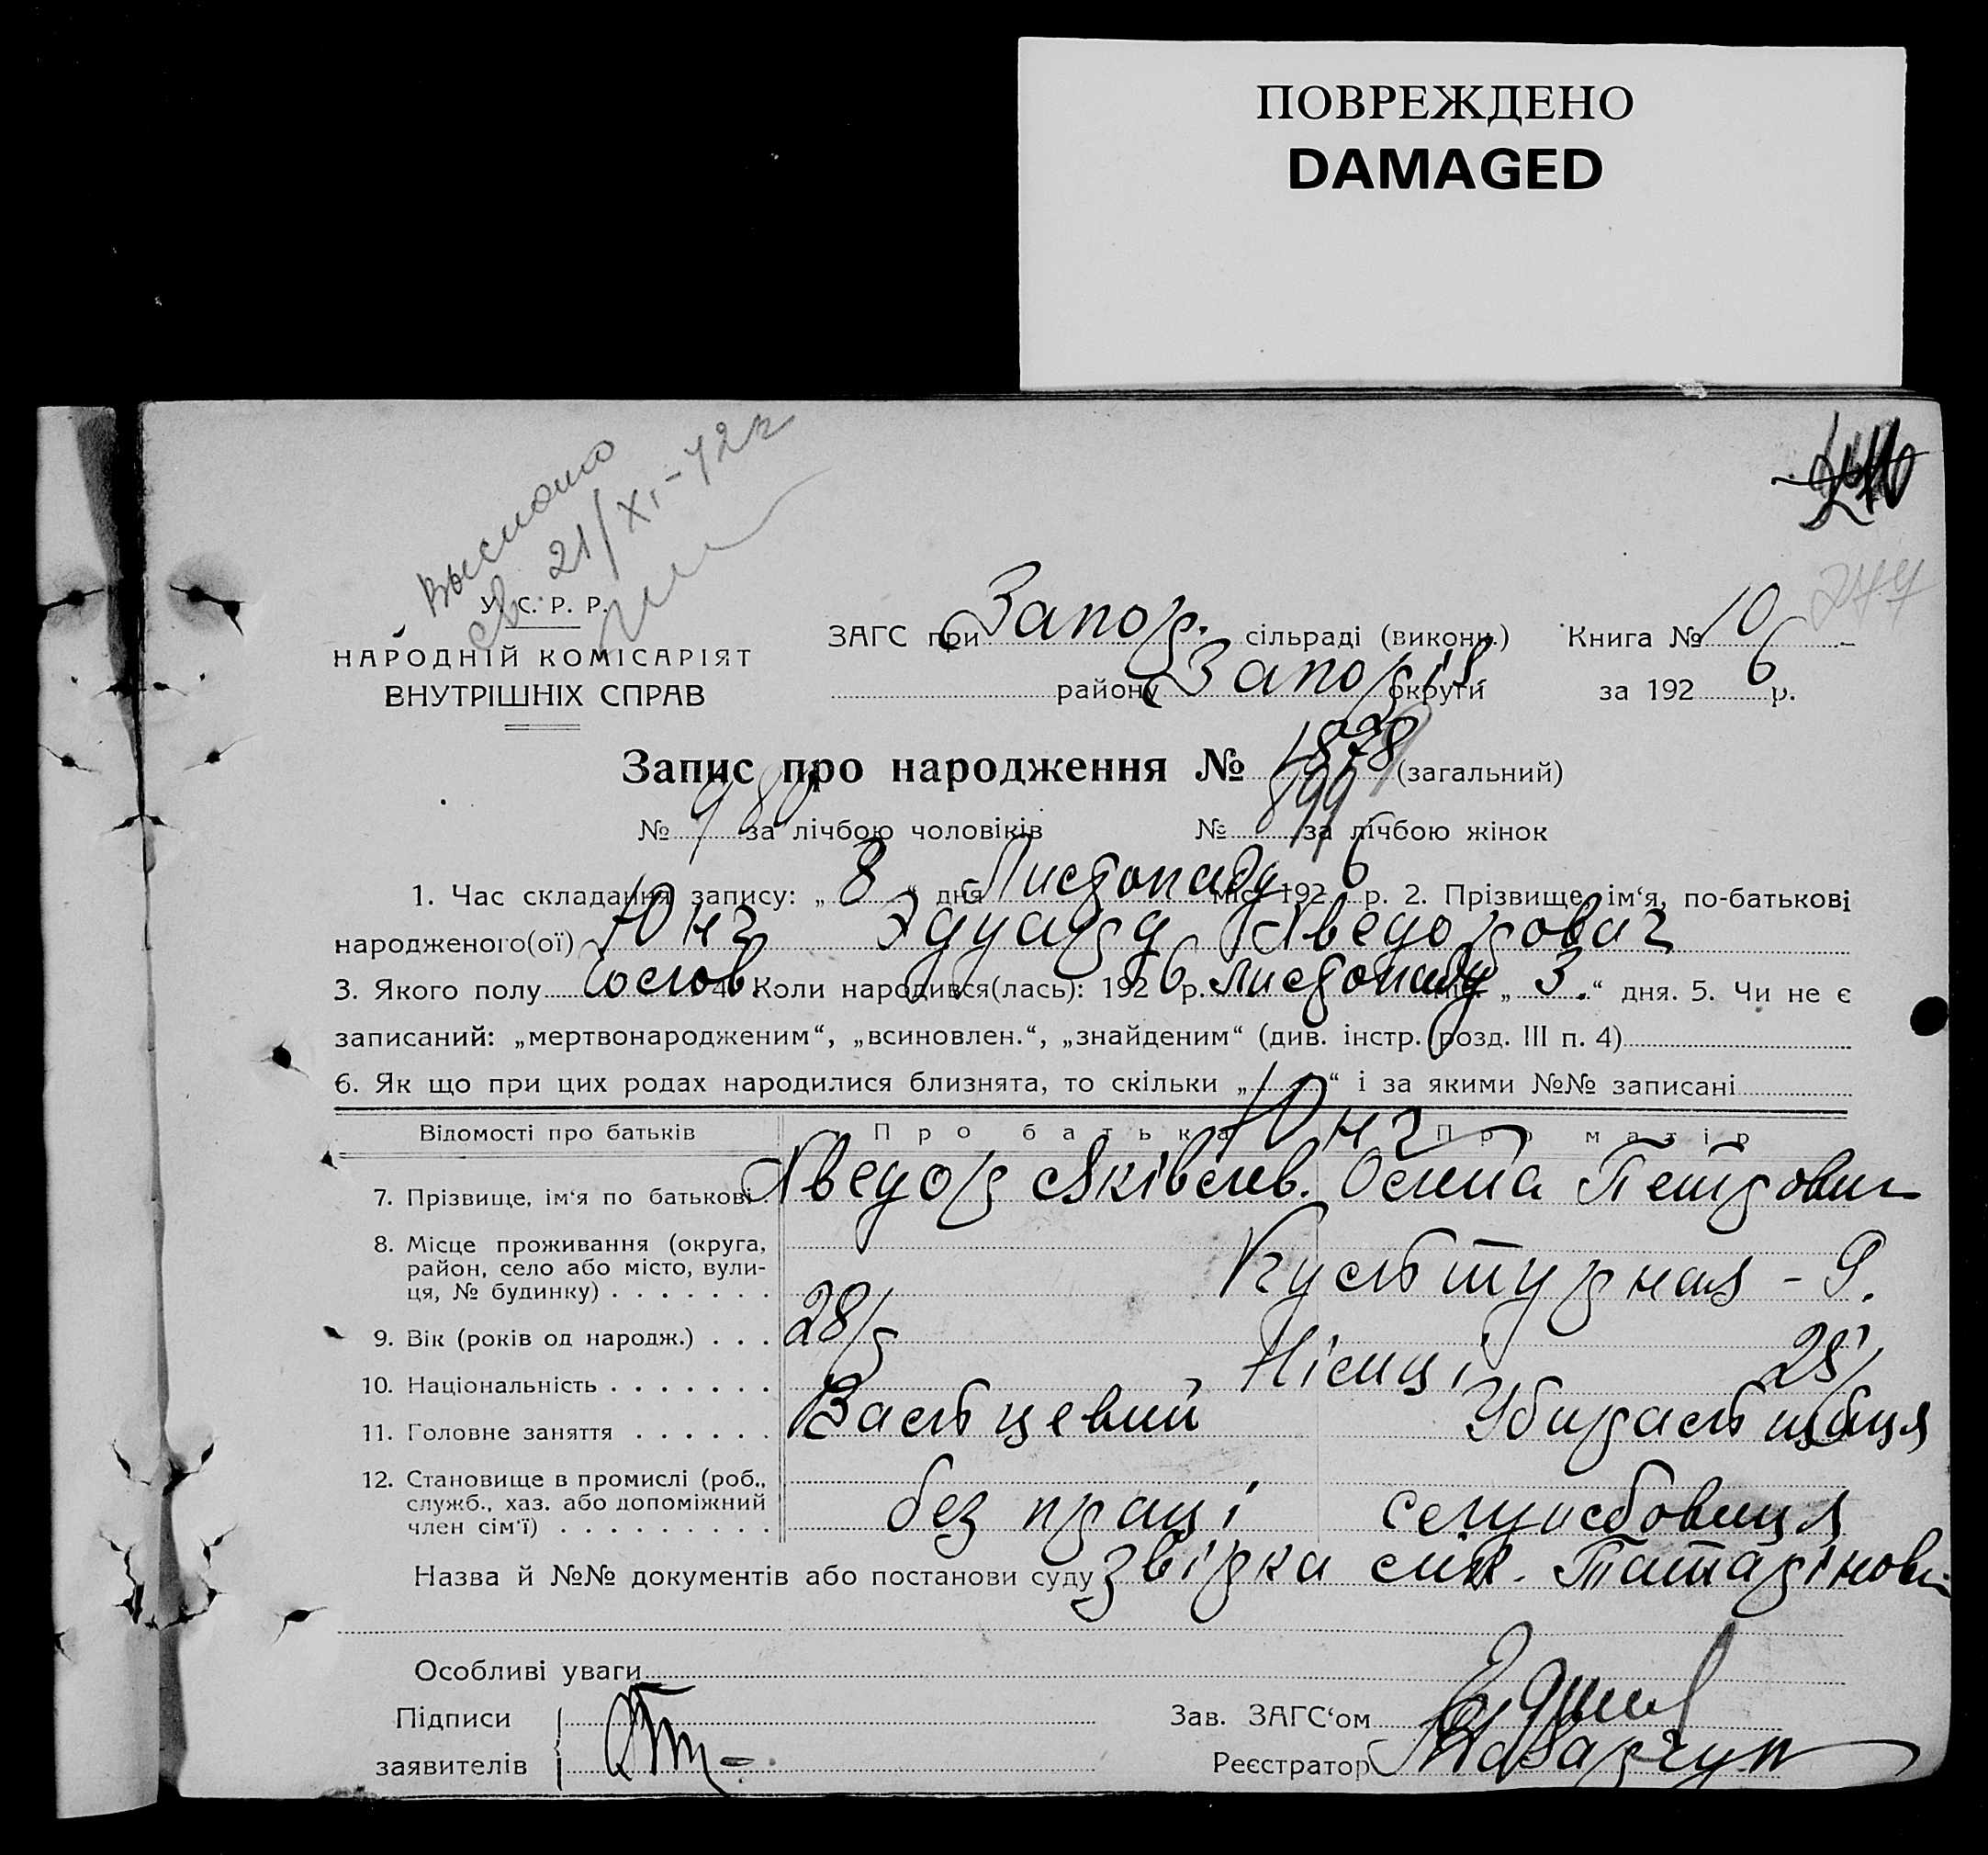 ПОВРЕЖДЕНО
DAMAGED
выслано
св. 21/XI-42г
244
У. С. Р. Р.
НАРОДНІЙ КОМІСАРІЯТ
ВНУТРІШНІХ СПРАВ
ЗАГС при Запор. сільраді (викони.) Книга № 10
району Запоріз. округи за 1926 р.
Запис про народження № 1878 (загальний)
№ 980 за лічбою чоловіків № 899 за лічбою жінок
1. Час складання запису: „8“ дня Листопаду міс. 1926 р. 2. Прізвище, ім‘я, по-батькові
народженого(ої) Юнг Эдуард Хведорович
3. Якого полу чолов. 4. Коли народився(лась): 1926 р. листопаду міс. „3.“ дня. 5. Чи не є
записаний: „мертвонародженим“, „всиновлен.“, „знайденим“ (див. інстр. розд. III п. 4)
6. Як що при цих родах народилися близнята, то скільки „ “ і за якими №№ записані
Відомості про батьків Про батька Про матір
Юнг
7. Прізвище, ім‘я по батькові Хведор Яківлев. Петровн
8. Місце проживання (округа,
район, село або місто, вули-
ця, № будинку) Культурная - 9.
9. Вік (років од народж.) 28 28
10. Національність Німці
11. Головне заняття Вальцевий Убиральщиця
12. Становище в промислі (роб.,
служб., хаз. або допоміжний
член сім‘ї) без праці службовиця
Назва й №№ документів або постанови суду звірка
Особливі уваги
Підписи
заявителів
Зав. ЗАГС‘ом
Реєстратор